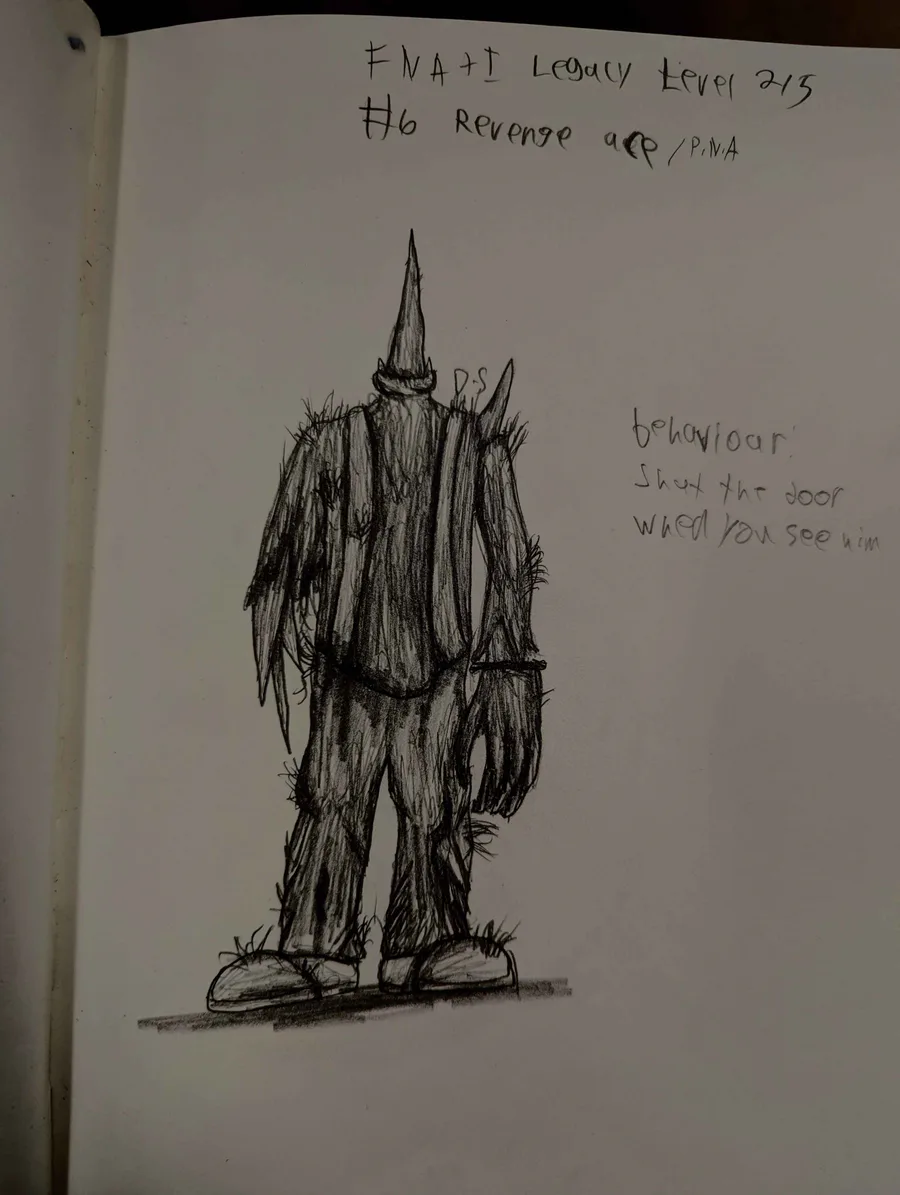 FNA+I Legacy Level 2/5
#6 Revenge ace / P.N.A
D.S
behaviour:
Shut the door
when you see him